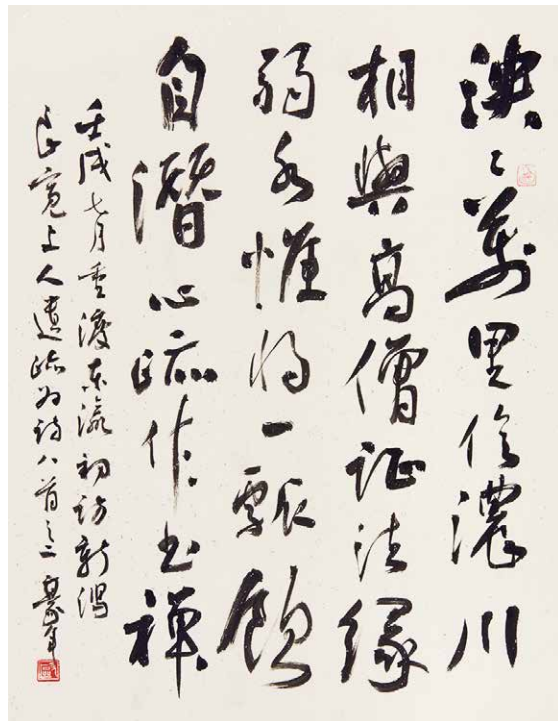 泱〻萬里信濃川
相與高僧証法緣
弱水惟將一瓢飲
自潛心跡作書禪
壬戌七月重渡東瀛初訪新潟
良寬上人遺跡為詩八首之